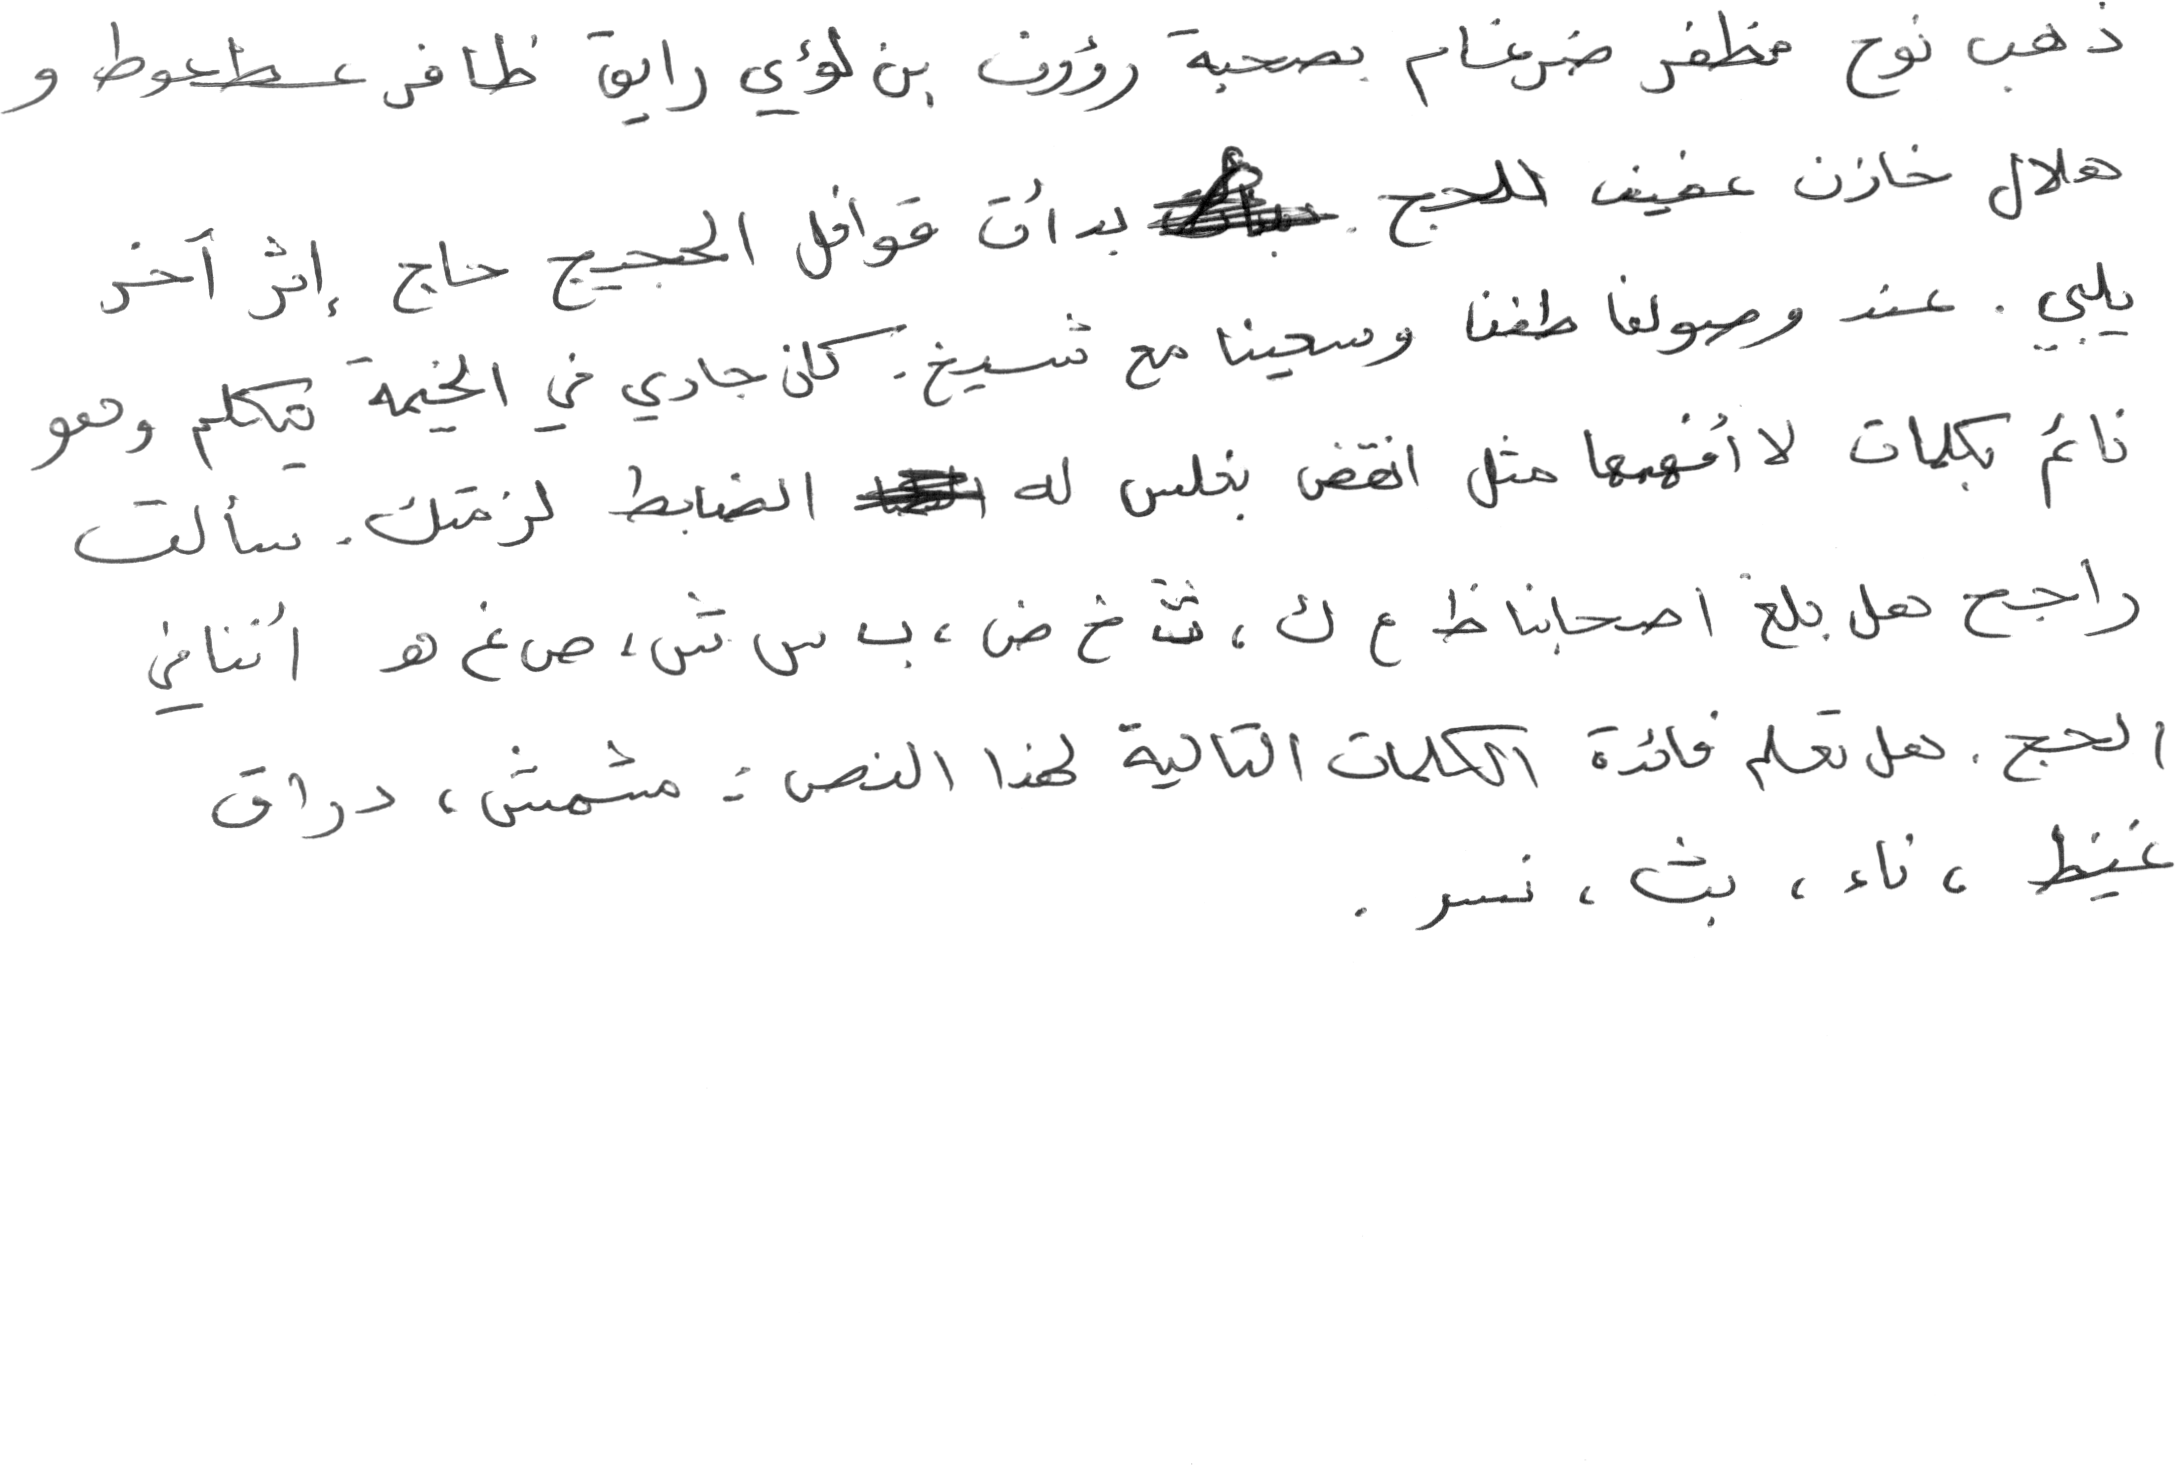 ذهب نوح مظفر ضرغام بصحبة رؤوف بن لؤي رايق ظافر عطعوط و
هلال خازن عفيف للحج. بدأت قوافل الحجيج حاج إثر آخر
يلبي. عند وصولنا طفنا وسعينا مع شيخ. كان جاري في الخيمة يتكلم وهو
نائم بكلمات لا أفهمها مثل انقض بخلس له الضابط لزمتك. سألت
راجح هل بلغ اصحابنا ظ ع ك، ث خ ض، ب س ش، ص غ هـ أننا في
الحج. هل تعلم فائدة الكلمات التالية لهذا النص: مشمش، دراق
غيظ، ناء، بث، نسر.